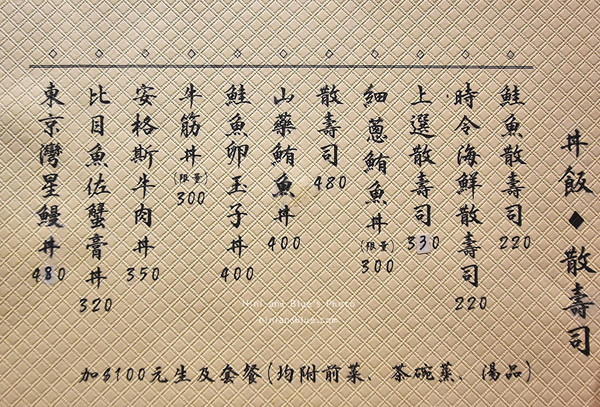 丼飯◆散壽司
鮭魚散壽司220
時令海鮮散壽司220
上選散壽司330
細蔥鮪魚丼(限量)300
散壽司480
山藥鮪魚丼400
鮭魚卵玉子丼400
牛筋丼(限量)300
安格斯牛肉丼350
比目魚佐蟹膏丼320
東京灣星鰻丼480
加$100元生及套餐(均附前菜、茶碗蒸、湯品)
Nini and Blue's Photo
niniandblue.com